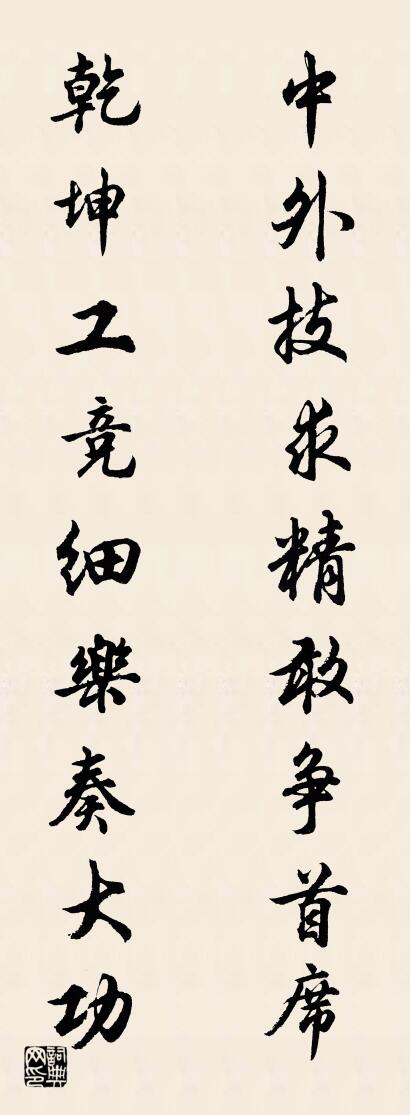 中外技求精敢争首席
乾坤工竞细樂奏大功
詞典网印